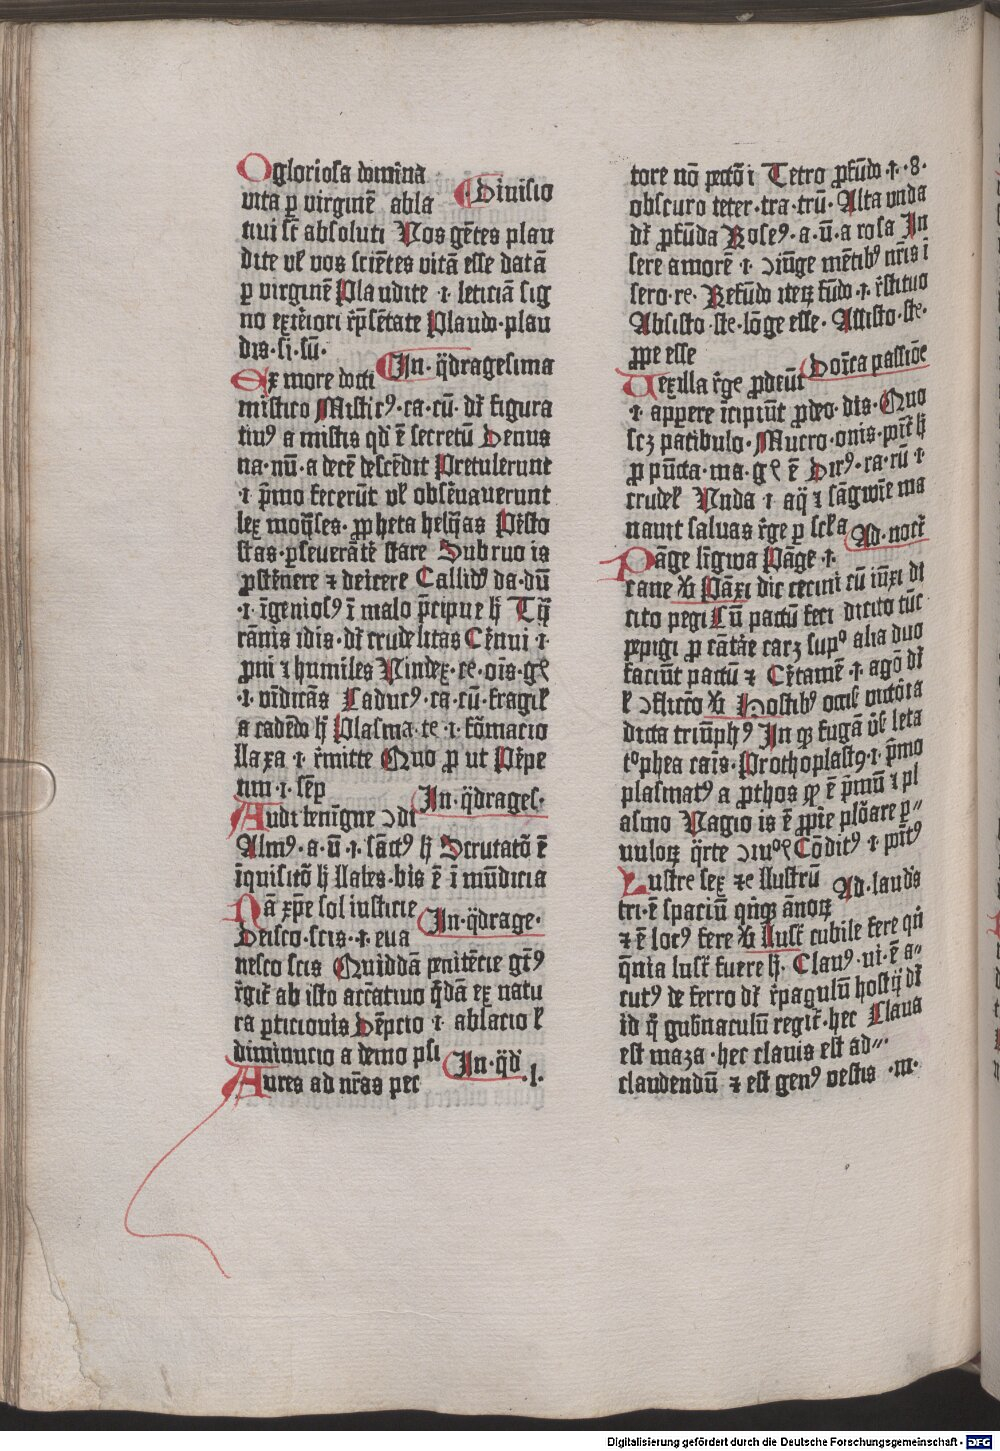 O gloriosa domina
vita ꝑ virginē abla ⸿ Diuisio
tiui sc̄ absoluti Vos gētes plau
dite vł vos sciētes vitā esse datā
ꝑ virginē Plaudite ·i· leticiā sig
no exteriori rp̄sētate Plaudo·plau
dis·si·sū·
Ex more docti In·q̄dragesima
mistico Misticꝰ·ca·cū· dr̄ figura
tiuꝰ a mistis qd' ē secretū Denus
na·nū·a decē descēdit Pretulerunt
·i· p̄mo fecerūt vł obseruauerunt
lex moyses· ꝓpheta helyas Presto
stas·ꝑseuerātē stare Subruo is
ꝓsternere ⁊ deicere Callidꝰ da·dū
·i·īgeniosꝰ ī malo p̄cipue h̄ Tyr
rānis idis·dr̄ crudelitas Cernui ·i·
ꝓni ⁊ humiles Vindex·ce·ois·gꝭ
·i·vīdicās Caducꝰ·ca·cū·fragił
a cadēdo h̄ Plasma·te·i·formacio
llaxa ·i· rmitte Quo ꝓ ut Perpe
tim ·i· sēp
Audi benigne ↄdi In·q̄drages·
Almꝰ·a·ū·i·sāctꝰ h̄ Scrutatō ē
īquisitō h̄ llabes·bis ē ī mūdicia
Iā xp̄e sol iusticie In·q̄drage·
Deisco·scis·i·eua
nesco scis Quiddā penitēcie gr̄ꝰ
rgit' ab isto accātiuo q̄dā ex natu
ra ꝑticionis Dēpcio ·i· ablacio ł
diminucio a demo psi
Aures ad nr̄as pec In·q̄d' ·l·
tore nō peccōi Tetro ꝓfūdo·i··8·
obscuro teter·tra·trū·Alta unda
dr̄ ꝓfūda Roseꝰ·a·ū·a rosa In
sere amorē ·i· ↄiūge mētibꝰ nr̄is ī
sero·re· Refūdo iteꝝ fūdo·i·rstituo
Absisto·ste·lōge esse·Assisto·ste·
ꝓpe esse
Vexilla rge ꝓdeūt Dorca passiōe
·i· appere īcipiūt ꝓdeo·dis·Quo
scꝫ patibulo·Mucro·onis·prīt h̄
ꝓ pūcta·ma·gꝭ ē Dirꝰ·ra·rū·i·
crudeł Vnda ·i· aq̄ ⁊ sāgwīe ma
nauit saluas rge ꝑ scła Ad·noctr
Pāge līgwa Pāge ·i·
cane ꝟ Pāxi dic cecini cū iūxi dr̄
cito pegi Cū pactū feci dicito tūc
pepigi ꝓ cātare carꝫ supͦ alia duo
faciūt pactū ⁊ Certamē ·i· agō dr̄
ł ↄflictō ꝟ Hostibꝰ occis victōia
dicta triūphꝰ In qꝫ fugā ūs leta
tͦphea cais·Prothoplastꝰ·i·p̄mo
plasmatꝰ a ꝓthos qd ē p̄mū ⁊ pl
asmo Vagio is ē ꝓpie plōare p''
uuloꝝ q̄rte ↄiuoꝭ Cōditꝰ ·i· pōitꝰ
Lustre sex ⁊c llustrū Ad·laudꝭ
tri·ē spaciū qn̄qꝫ ānoꝝ
⁊ ē locꝰ fere ꝟ Lust̄ cubile fere qn̄
q̄nia lust̄ fuere h̄· Clauꝰ·ui·ē a''
cutꝰ de ferro dr̄ rpagulū hostij dr̄
id q̄ gubnaculū regit·hec Claua
est maza·hec clauis est ad''·
claudendū ⁊ est genꝰ vestis ·m·
Digitalisierung gefördert durch die Deutsche Forschungsgemeinschaft - DFG